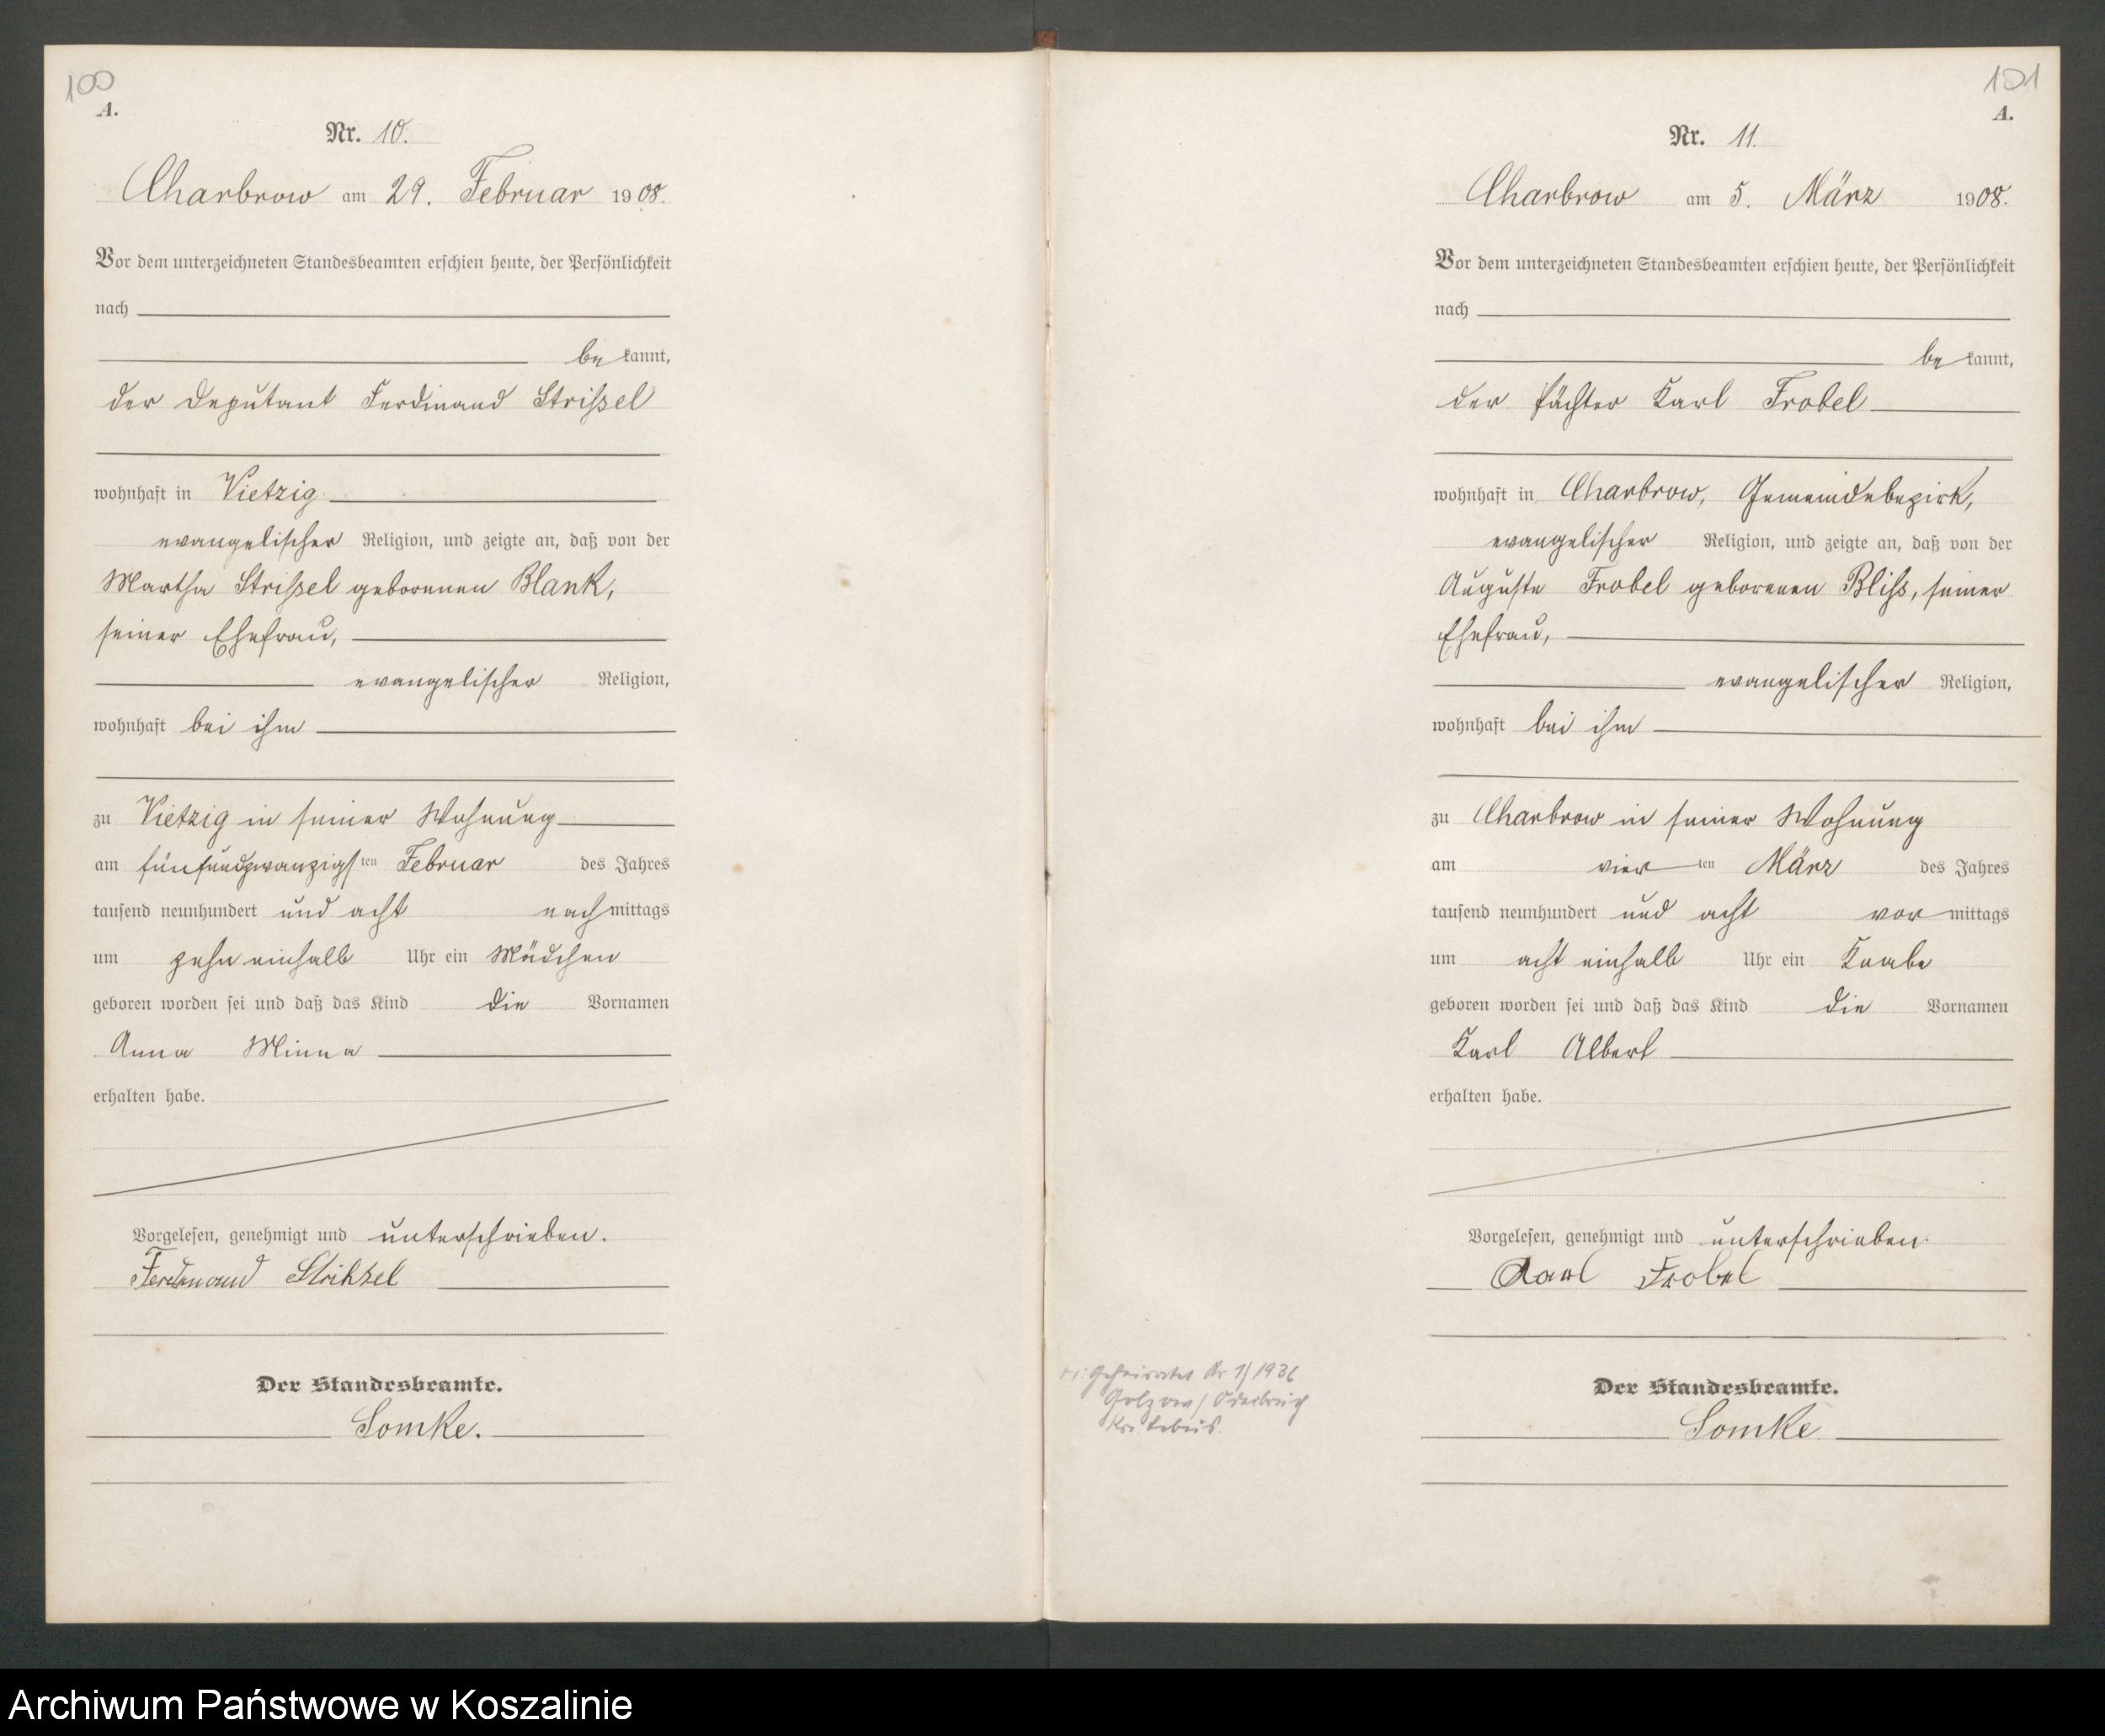 100
A.
Nr. 10.
Charbrow am 29. Februar 1908.
Vor dem unterzeichneten Standesbeamten erschien heute, der Persönlichkeit
nach
be kannt,
der Deputant Ferdinand Strißel
wohnhaft in Vietzig
evangelischer Religion, und zeigte an, daß von der
Martha Strißel geborenen Blank,
seiner Ehefrau,
evangelischer Religion,
wohnhaft bei ihm
zu Vietzig in seiner Wohnung
am fünfundzwanzigsten Februar des Jahres
tausend neunhundert und acht nachmittags
um zehn einhalb Uhr ein Mädchen
geboren worden sei und daß das Kind die Vornamen
Anna Minna
erhalten habe.
Vorgelesen, genehmigt und unterschrieben.
Ferdinand
Der Standesbeamte.
Somke.
101
A.
Nr. 11.
Charbrow am 5. März 1908.
Vor dem unterzeichneten Standesbeamten erschien heute, der Persönlichkeit
nach
be kannt,
der Pächter Karl Frobel
wohnhaft in Charbrow, Gemeindebezirk,
evangelischer Religion, und zeigte an, daß von der
Auguste Frobel geborenen Bliß, seiner
Ehefrau,
evangelischer Religion,
wohnhaft bei ihm
zu Charbrow in seiner Wohnung
am vierten März des Jahres
tausend neunhundert und acht vormittags
um acht einhalb Uhr ein Knabe
geboren worden sei und daß das Kind die Vornamen
Karl Albert
erhalten habe.
Vorgelesen, genehmigt und unterschrieben.
Karl Frobel
Der Standesbeamte.
Somke
Geheiratet Nr 1/1936
Golzow/Oderbruch
Krs. Lebus.
Archiwum Państwowe w Koszalinie